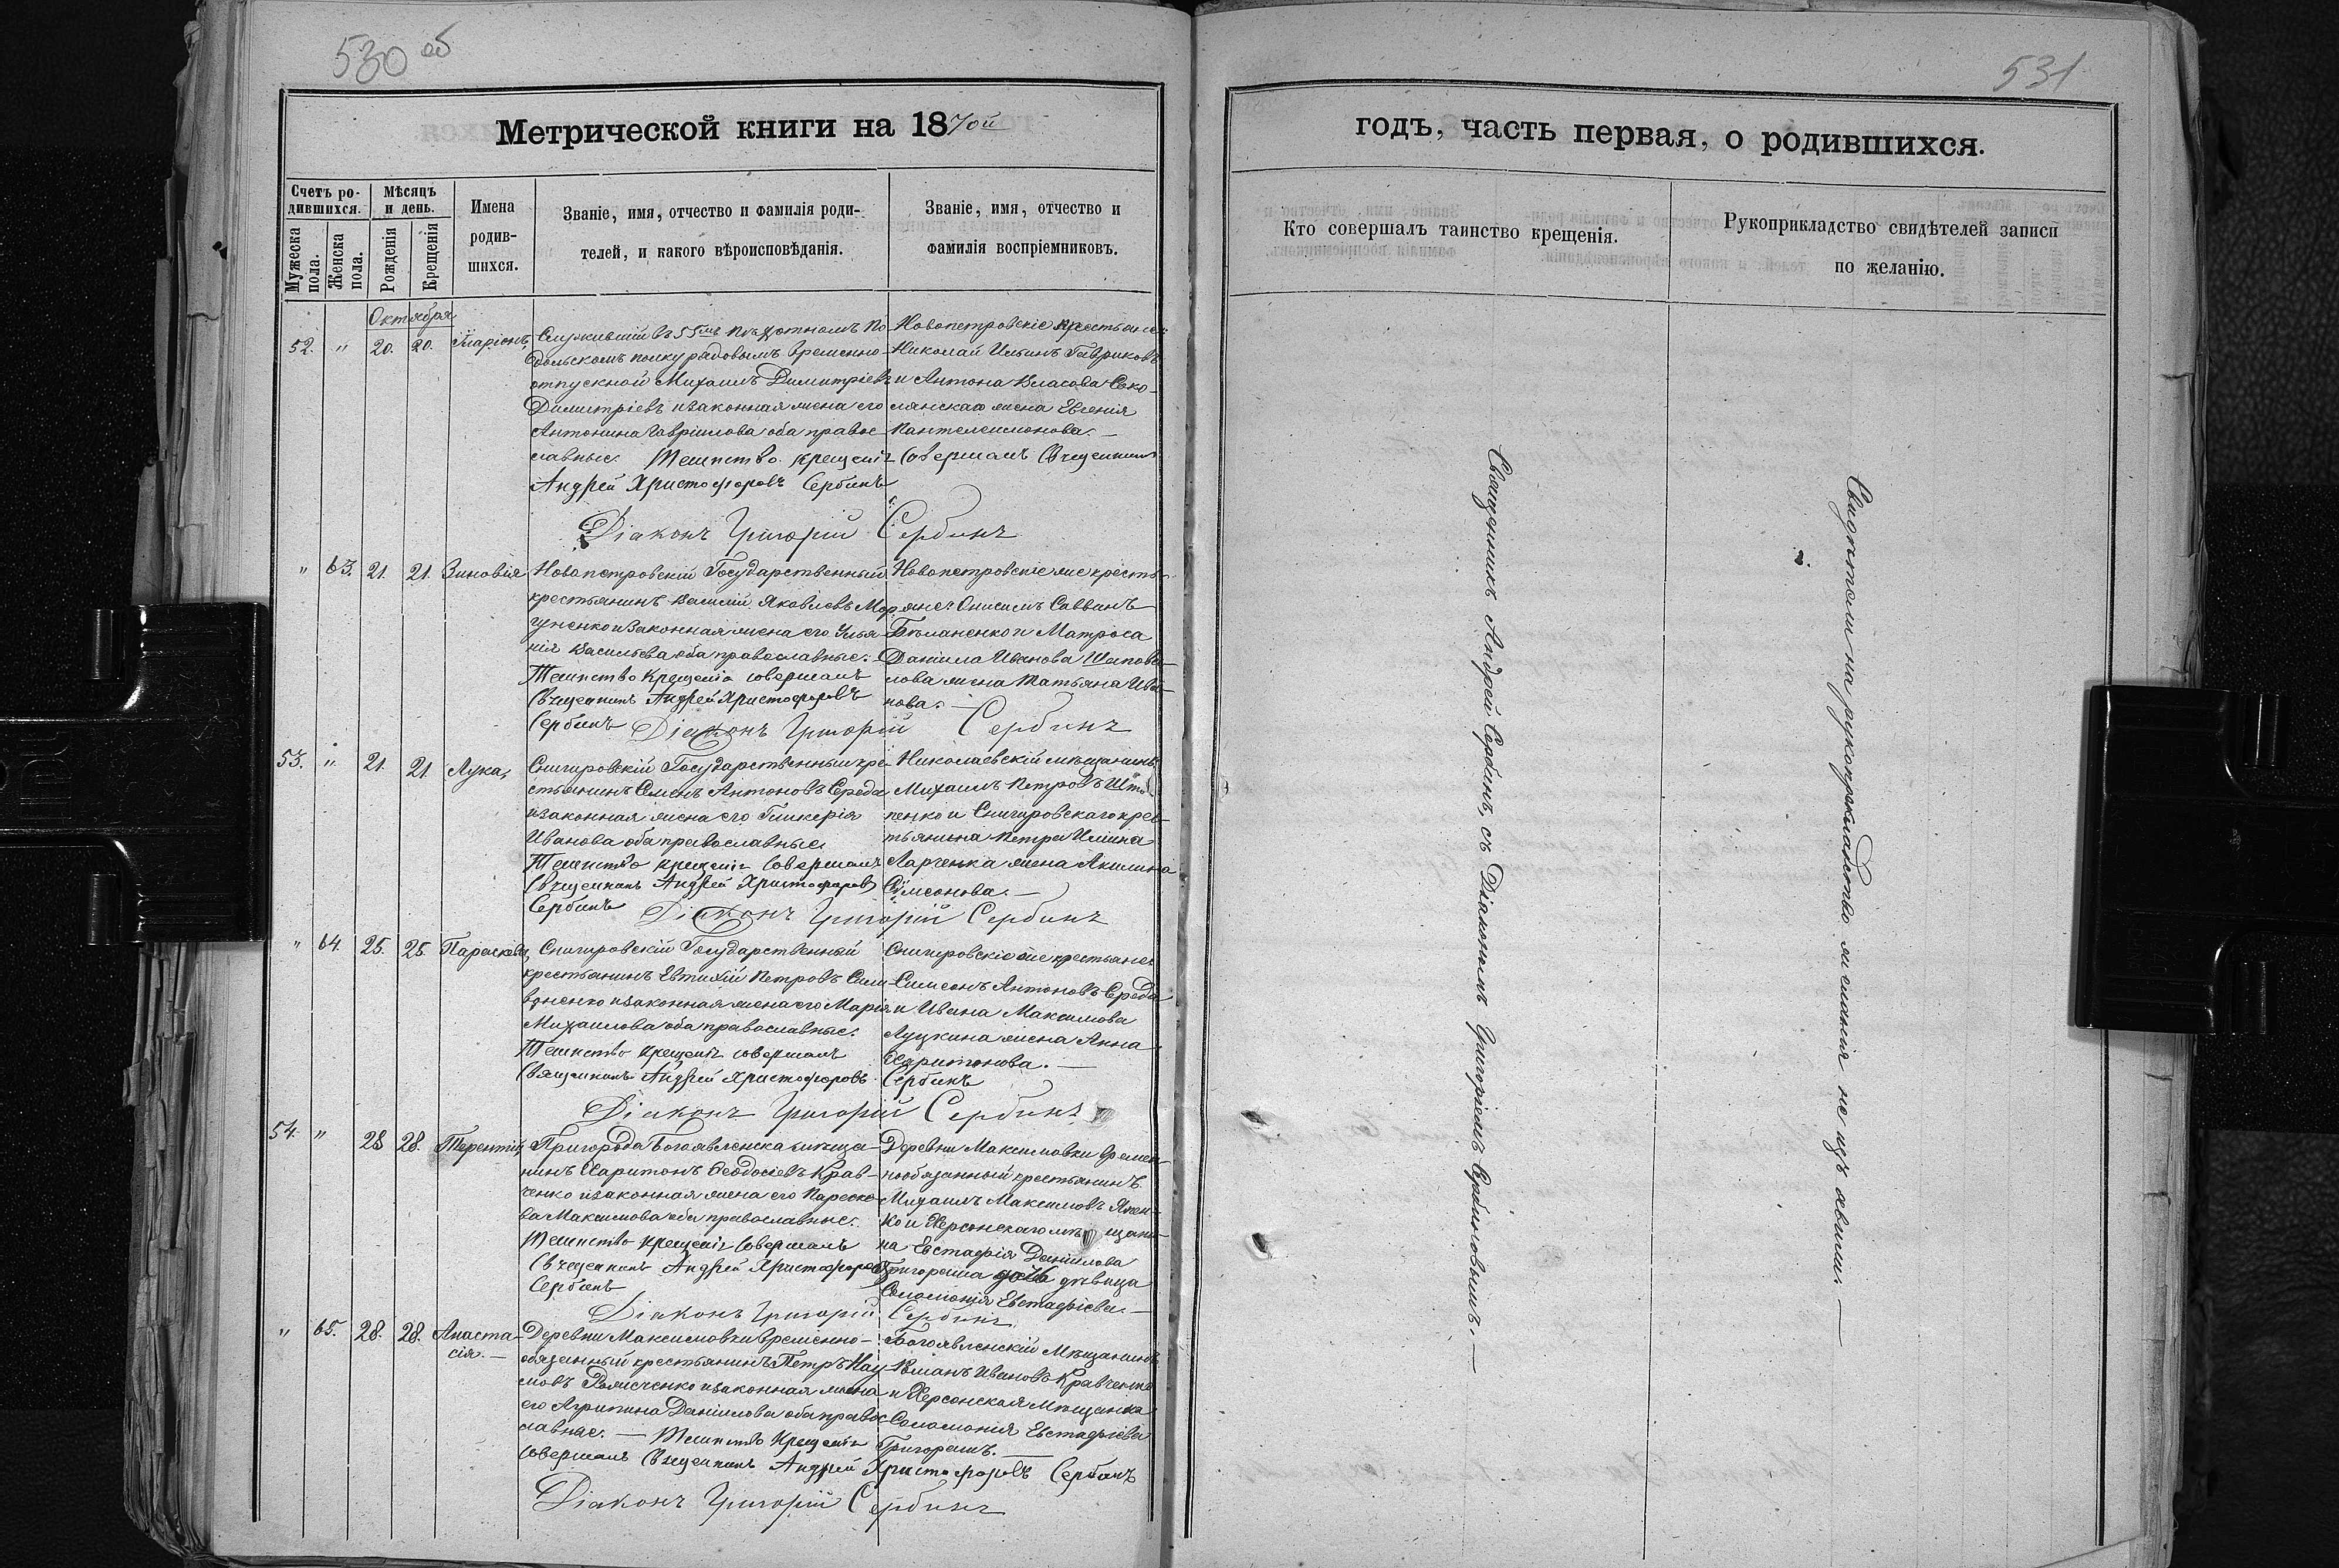 530 об
531
Метрической книги на 1870й
годъ, часть первая, о родившихся.
Счетъ ро-
дившихся.
Мужеска пола.
Женска пола.
Мѣсяцъ
и день.
Рожденія
Крещенія
Имена
родив-
шихся.
Званіе, имя, отчество и фамилія роди-
телей, и какого вѣроисповѣданія.
Званіе, имя, отчество и
фамилія воспріемниковъ.
Кто совершалъ таинство крещенія.
Рукоприкладство свидѣтелей записи
по желанію.
Октября
52. " 20. 20. Иларіонъ,
Служившій въ 55мъ Пѣхотномъ По
дольскомъ полку рядовымъ временно-
отпускной Михаилъ Димитріевъ
Димитріевъ и законная жена его
Антонина Гавріилова оба правос
лавные. Таинство крещенія совершалъ Священникъ
Андрей Христофоровъ Сербинъ
Новопетровскіе крестьяне:
Николай Ильинъ Гавриковъ
и Антона Власова Соко-
лянскаго жена Евгенія
Пантелеимонова.—
Діаконъ Григорій Сербинъ
" 63. 21. 21. Зиновія
Новопетровскій Государственный
крестьянинъ Василій Яковлевъ Мор
гуненко и законная жена его Улья
нія Васильева оба православные.
Таинство Крещенія совершалъ
Священникъ Андрей Христофоровъ
Сербинъ
Новопетровскіе же кресть-
яне: Онисимъ Саввинъ
и Матроса
Даніила Иванова Шапова-
лова жена Татьяна Ива-
нова.—
Діаконъ Григорій Сербинъ
53. " 21. 21 Лука,
Снигировскій Государственный кре-
стьянинъ Семенъ Антоновъ Середа
и законная жена его Гликерія
Иванова оба православные.
Таинство крещенія совершалъ
Священникъ Андрей Христофоровъ
Сербинъ
Николаевскій мѣщанинъ
Михаилъ Петровъ
пенко и Снигировскаго крес-
тьянина Петра Ильина
Ларченка жена Акилина
Сѵмеонова.—
Діаконъ Григорій Сербинъ
" 64. 25. 25. Параскева,
Снигировскій Государственный
крестьянинъ Евтихій Петровъ Сили-
воненко и законная жена его Марія
Михаилова оба православные.
Таинство крещенія совершалъ
Священникъ Андрей Христофоровъ Сербинъ
Снигировскіе же крестьяне:
Симеонъ Антоновъ Середа
и Ивана Максимова
Луцкина жена Анна
Харитонова.—
Діаконъ Григорій Сербинъ
54. " 28 28. Терентій,
Пригорода Богоявленска мѣща-
нинъ Харитонъ Ѳеодосіевъ Крав-
ченко и законная жена его Параске-
ва Максимова оба православные.
Таинство крещенія совершалъ
Священникъ Андрей Христофоровъ
Сербинъ
Деревни Максимовки времен-
нообязанный крестьянинъ
Михаилъ Максимовъ
ко и Херсонскаго мѣщани-
на Евстафія Даніилова
Григораша дочь дѣвица
Соломонія Евстафіева.—
Діаконъ Григорій Сербинъ
" 65. 28. 28. Анаста-
сія.—
Деревни Максимовки временно-
обязанный крестьянинъ Петръ Нау-
мовъ и законная жена
его Агрипина Даніилова оба правос-
лавные.— Таинство Крещенія
совершалъ Священникъ Андрей Христофоровъ Сербинъ
Богоявленскій Мѣщанинъ
Иванова Кравченко
и Херсонская Мѣщанка
Соломонія Евстафіева
Григорашъ.—
Діаконъ Григорій Сербинъ
Священникъ Андрей Сербинъ, съ Діакономъ Григоріемъ Сербиновымъ.—
Свидѣтели на рукоприкладство желанія не изъявили.—